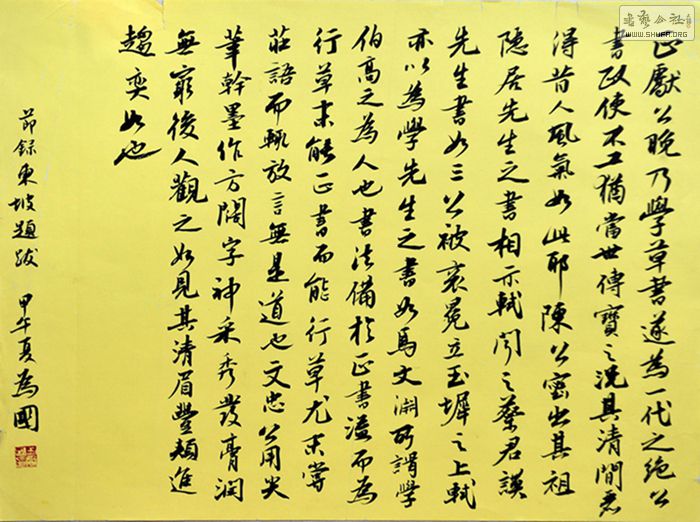 正獻公晚乃學草書遂為一代之絕公
書政使不工猶當世傳寶之況其清閒
得昔人風氣如此耶陳公密出其祖
隱居先生之書相示軾聞之蔡君謨
先生書如三公被袞冕立玉墀之上軾
亦以為學先生之書如馬文淵所謂學
伯高之為人也書法備於正書溢而為
行草未能正書而能行草尤未嘗
莊語而輒放言無是道也文忠公用尖
筆幹墨作方闊字神采秀發膏潤
無窮後人觀之如見其清眉豐頰進
趨奕如也
節錄東坡題跋 甲午夏為國
書藝公社
WWW.SHUFA.ORG